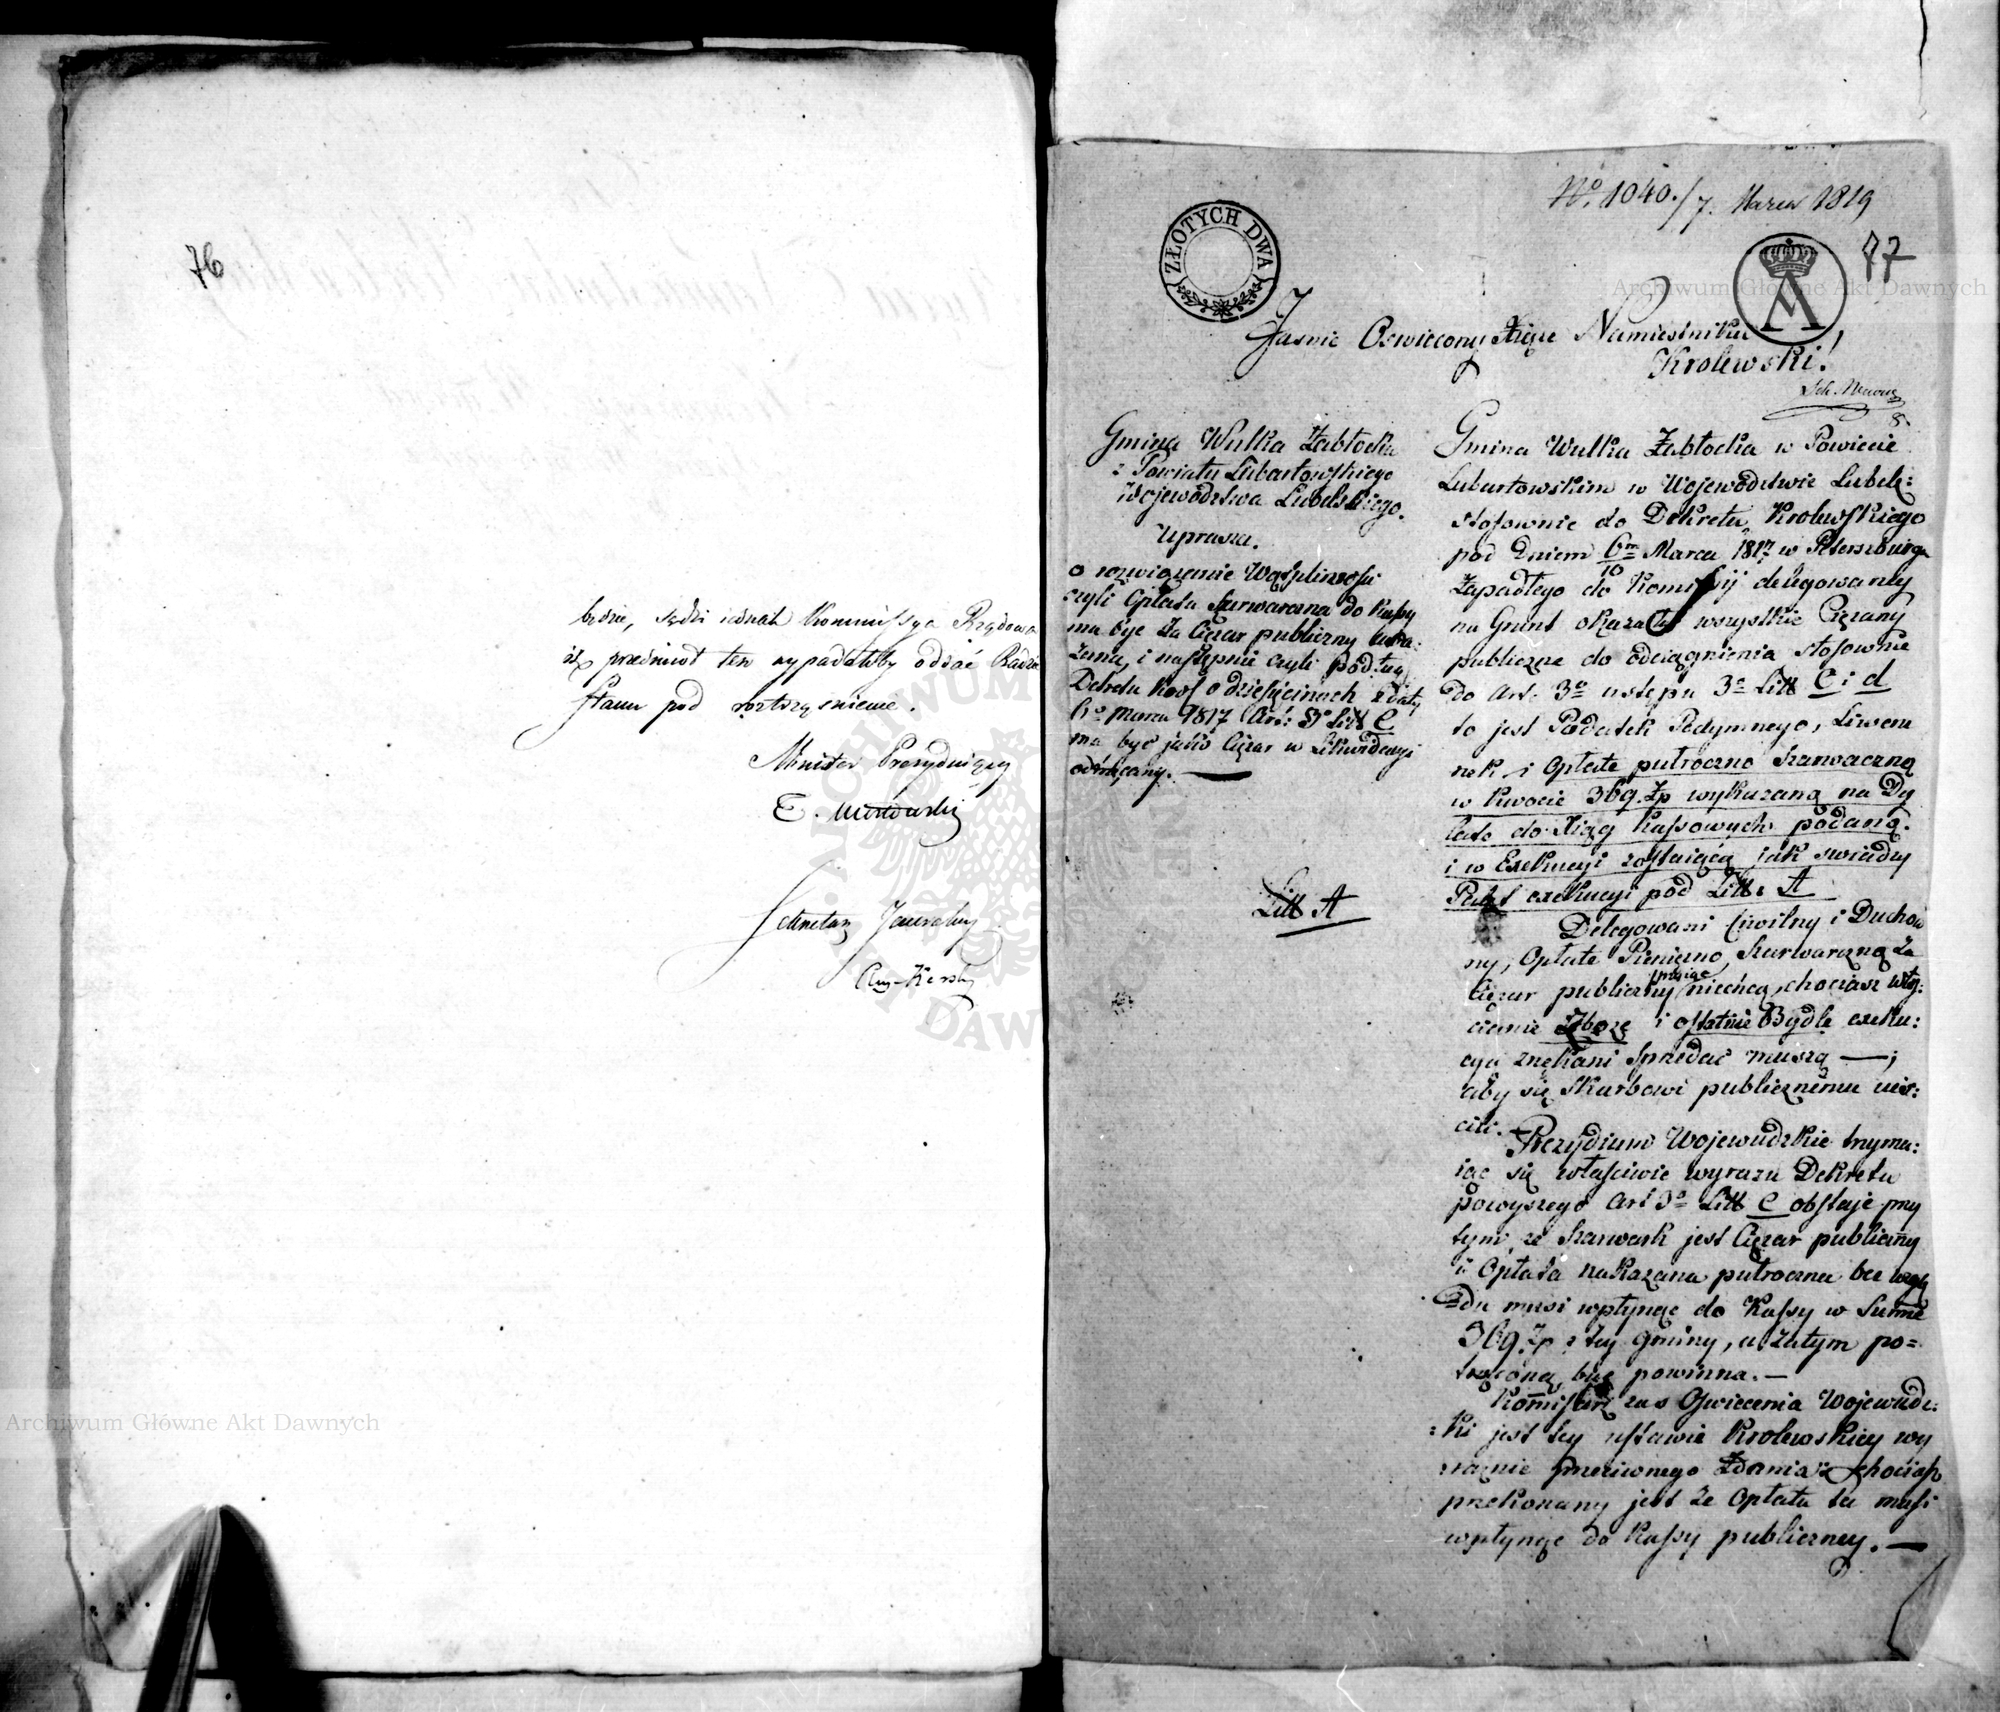 76
będzie, sądzi iednak Kommissya Rządowa
iż przedmiot ten wypadałoby oddać Radzie
Stanu pod roztrząśnienie.
Minister Prezyduiący
T. Mostowski
Sekretarz Jeneralny
Aug. Karski
Archiwum Główne Akt Dawnych
No. 1040./7. Marca 1819
77
ZŁOTYCH DWA
Archiwum Główne Akt Dawnych
Jasnie Oswiecony Xiąże Namiestniku
Krolewski!
Gmina Wulka Zabłocka
z Powiatu Lubartowskiego
Wojewodztwa Lubelskiego.
Uprasza.
o rozwiązanie Wątpliwości
czyli Opłata Szarwarczna do Kassy
ma być za Ciężar publiczny uwa:
żana, i następnie czyli podług
Dekretu Krol o dziesięcinach z daty
6o Marca 1817 Art: 3o Litt C
ma być jako Ciężar w Likwidacyi
odtrącany. —
Litt A
Gmina Wulka Zabłocka w Powiecie
Lubartowskim w Wojewodztwie Lubel:
stosownie do Dekretu Krolewskiego
pod Dniem 6m Marca 1817 w Petersburgu
18
zapadłego do Komissij delegowaney
na Grunt okazała wszystkie Ciężary
publiczne do odciągnienia stosownie
do Art. 3o ustępu 3o Litt C i d
to jest Podatek Podymnego, Liweru
nek i Opłate pułroczno Szarwaczną
w kwocie 369. Zp wykazaną na Dy
late do Xiąg Kassowych podaną.
i w Exekucyi zostaiącą jak swiadczy
Palet exekucyi pod Litt: A
Delegowani Cywilny i Duchow
ny, Opłate Pienieżno, Szarwarczną za
Ciężar publiczny przyiąć niechcą, chociaż włoś:
cianie Zboże i ostatnie Bydle exeku:
cyą znękani sprzedać muszą —;
aby się Skarbowi publicznemu uiś:
cili. —
Prezydium Wojewudzkie trzyma:
iąc się właściwie wyrazu Dekretu
powyszego Art 3o Litt C obstaje przy
tym, że Szarwark jest Ciężar publiczny
i Opłata nakazana pułroczna bez wzglę
du musi wpłynąć do Kassy w Summie
369. Zp z tey gminy, a zatym po=
trącona być powinna. —
Komissarz zas Oswiecenia Wojewudz:
:ki jest tey ustawie Krolewskiey wy
raznie przeciwnego Zdania: chociaż
przekonany jest że Opłata ta musi
wpłynąć do Kassy publiczney. —